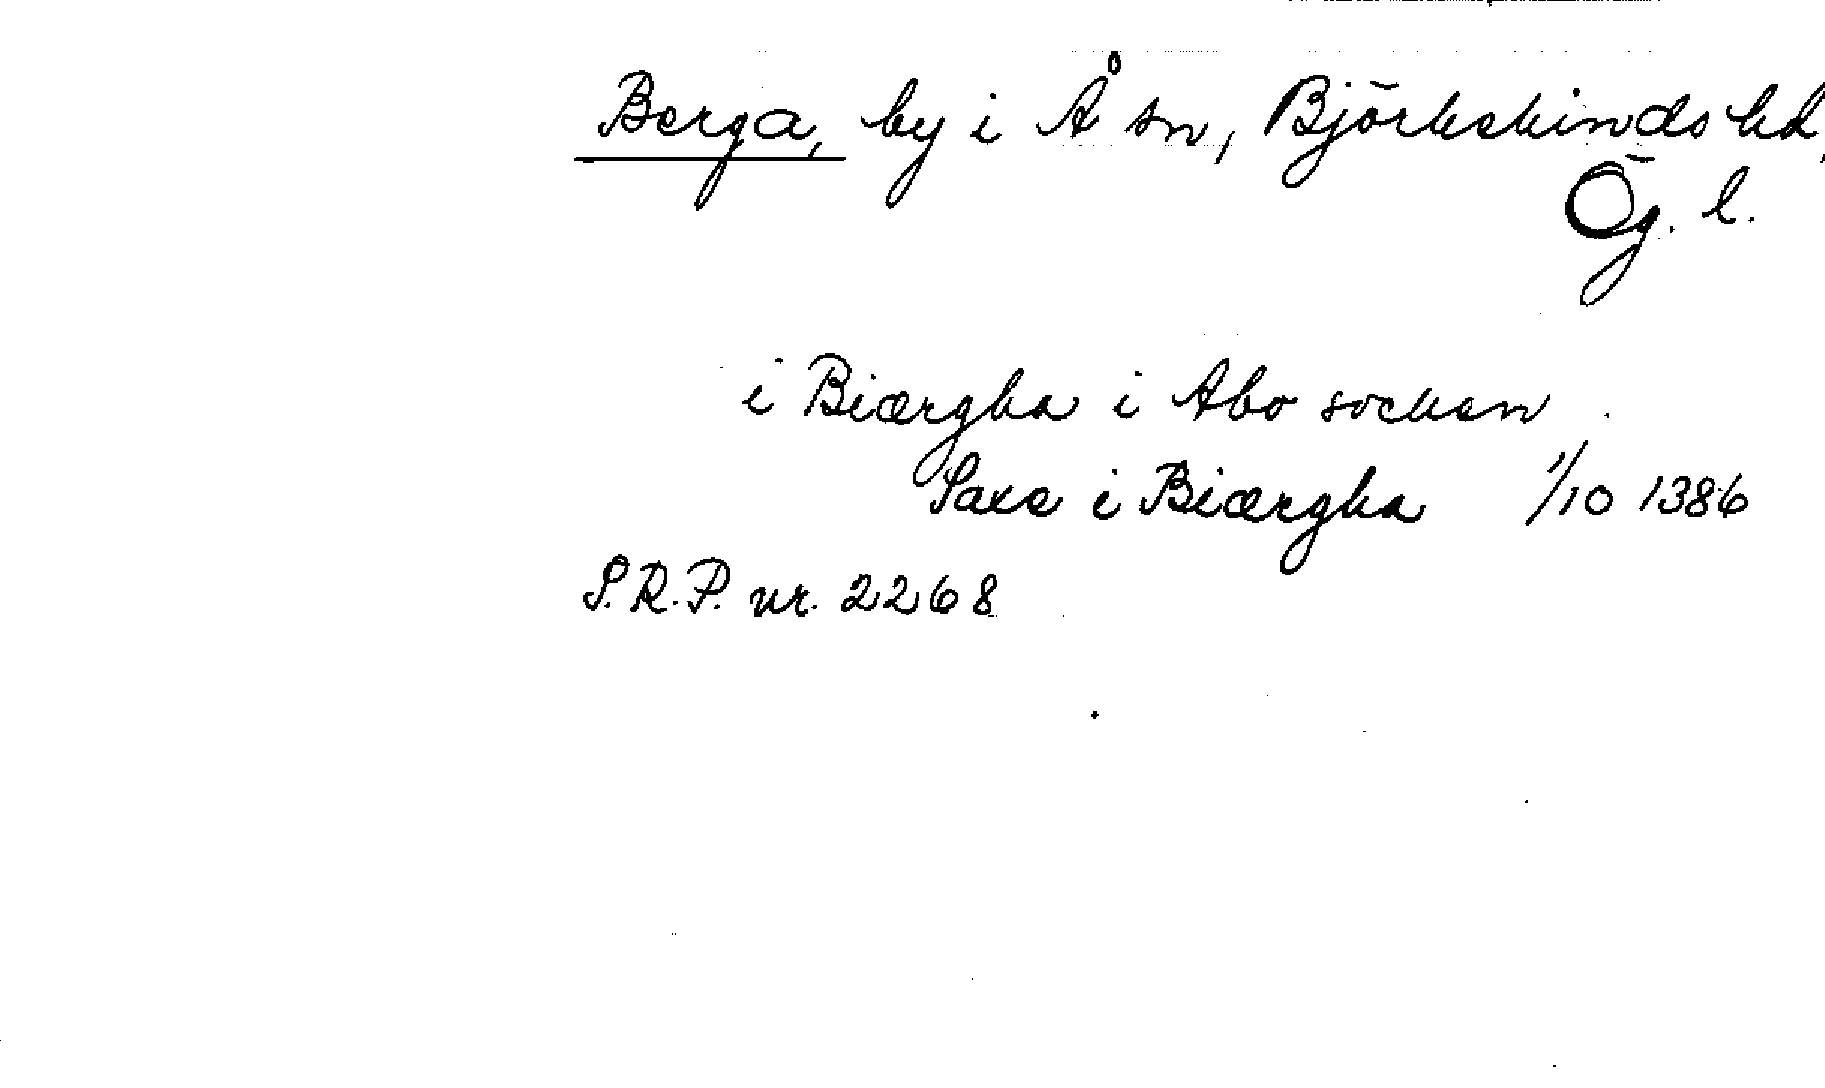 Berga, by i Å sn, Björkekinds hd,
Ög. l.
i Biærgha i Abo socken
Saxe i Biærgha 1/10 1386
S.R.P. nr. 2268